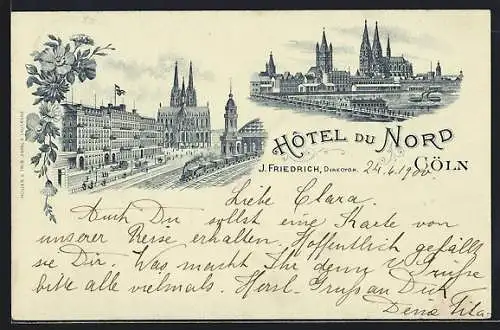 HÔTEL DU NORD
J. FRIEDRICH, DIRECTOR.
CÖLN
24.4.1900
Liebe Clara.
Auch Du sollst eine Karte von
unserer Reise erhalten. Hoffentlich gefällt
sie Dir. Was macht Ihr denn? Grüße
bitte alle vielmals. Herzl. Gruß an Dich
Deine